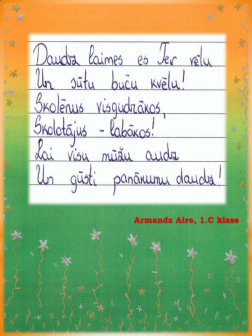 Daudz laimes es Tev vēlu
Un sūtu buču kvēlu!
Skolēnus visgudrākos,
Skolotājus - labākos!
Lai visu mūžu audz
Un gūsti panākumu daudz!
Armands Aire, 1.C klase